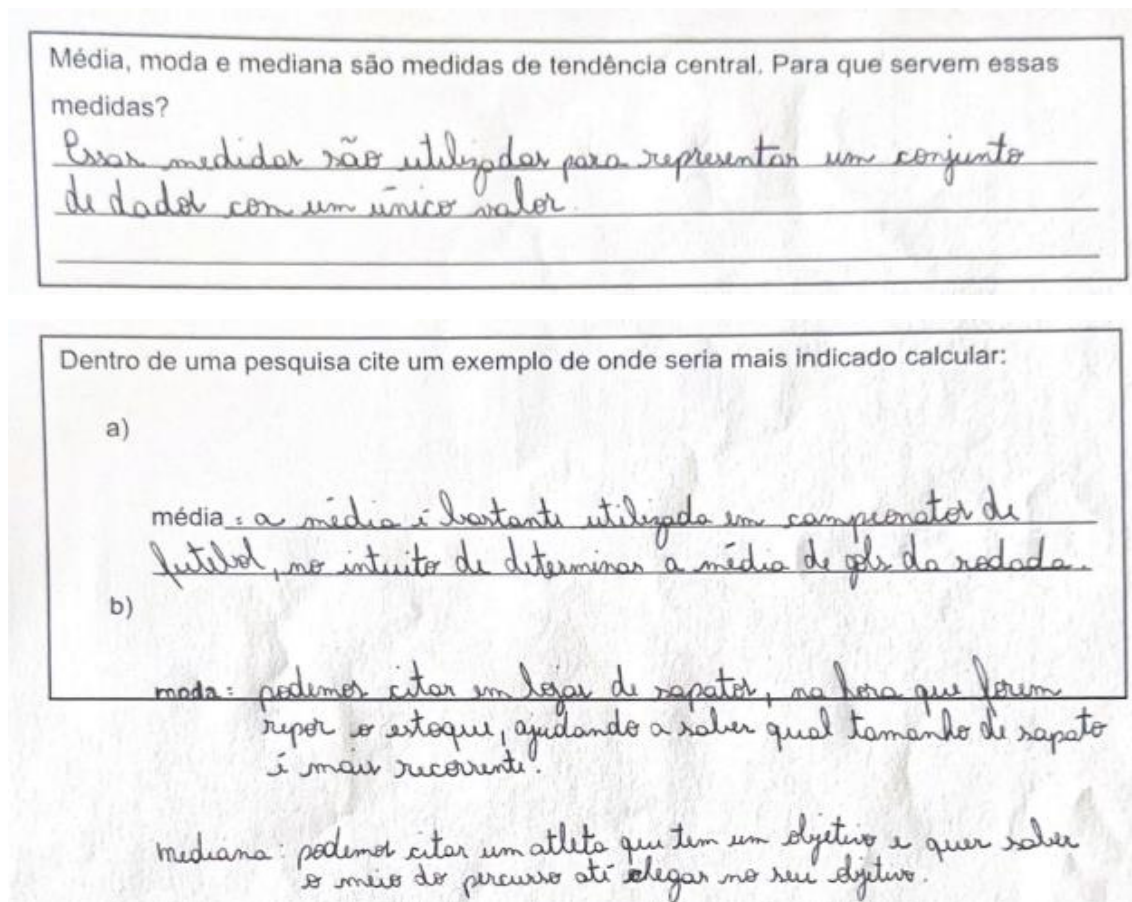 Média, moda e mediana são medidas de tendência central. Para que servem essas
medidas?
Essas medidas são utilizadas para representar um conjunto
de dados com um único valor.
Dentro de uma pesquisa cite um exemplo de onde seria mais indicado calcular:
a)
média : a média é bastante utilizada em campeonatos de
futebol, no intuito de determinar a média de gols da rodada.
b)
moda : podemos citar em lojas de sapatos, na hora que forem
repor o estoque, ajudando a saber qual tamanho de sapato
é mais recorrente.
mediana : podemos citar um atleta que tem um objetivo e quer saber
o meio do percurso até chegar no seu objetivo.